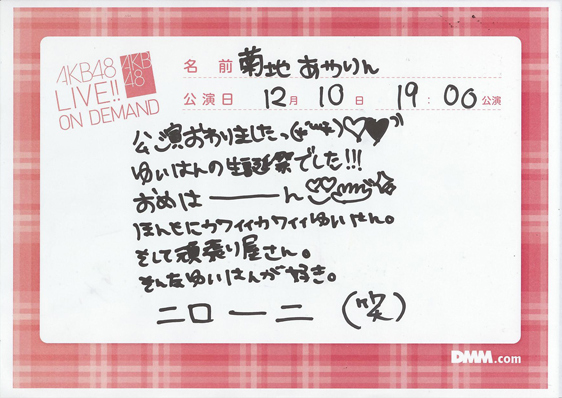 AKB48
LIVE!!
ON DEMAND
AKB
48
名 前 菊地あやりん
公演日 12月 10日 19:00公演
公演おわりましたっ(*´ω`*)♡♥"
ゆいはんの生誕祭でした!!!
おめは———ん♡♡☆
ほんとにカワイイカワイイゆいはん。
そして頑張り屋さん。
そんなゆいはんが好き。
二ロ一二 (笑)
DMM.com